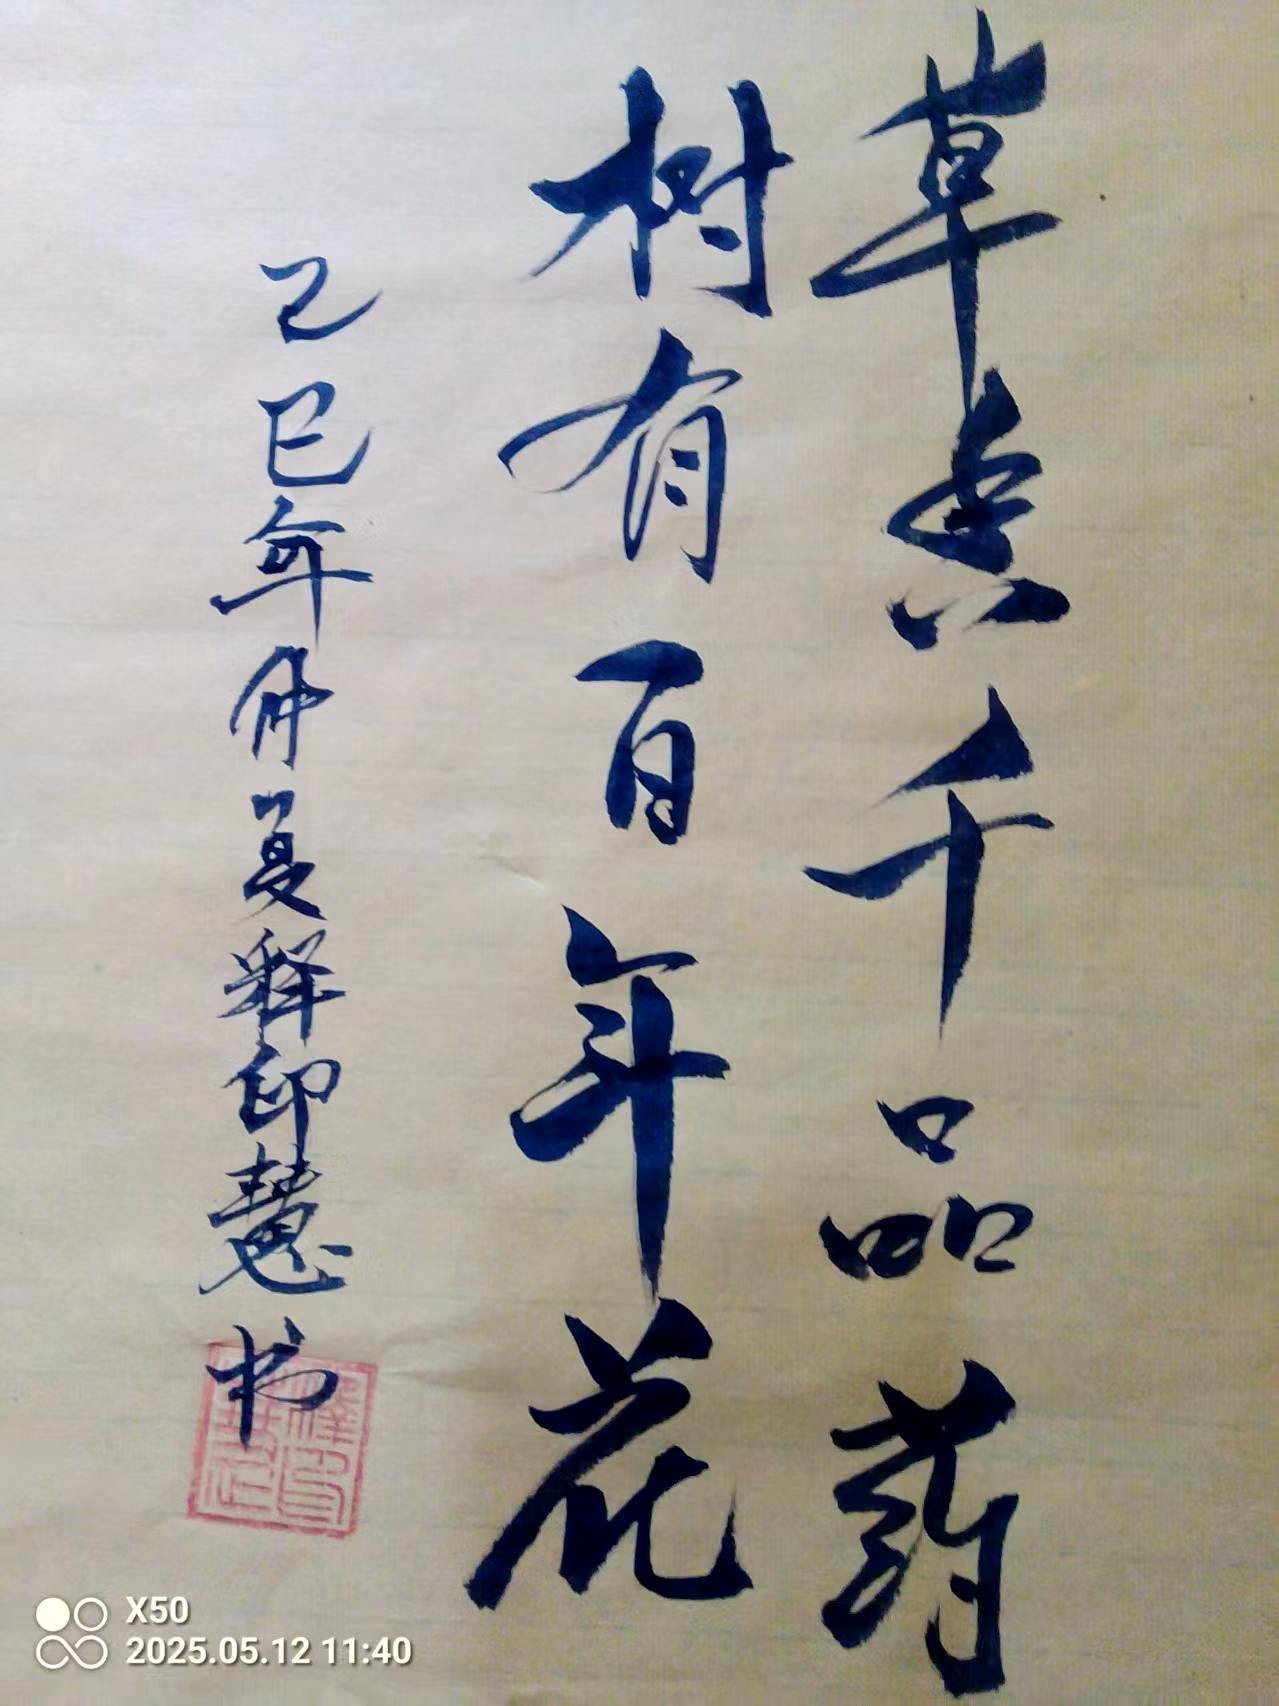 草千品药
树有百年花
乙巳年仲夏释印慧书
X50
2025.05.12 11:40